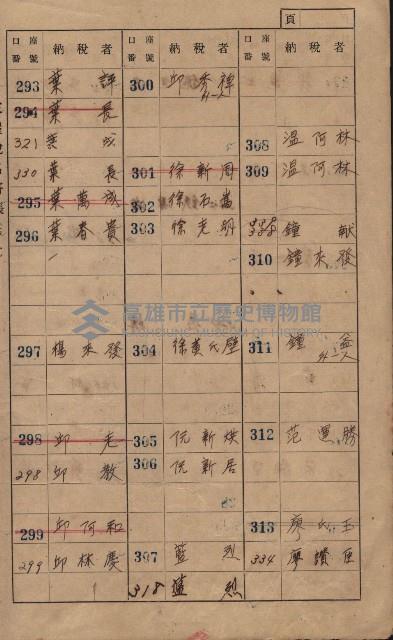 頁
口座番號 納稅者
293 葉評
294 葉長
321 葉成
330 葉長
295 葉萬成
296 葉春貴
297 楊來發
298 邱老
298 邱教
299 邱阿和
299 邱林慶
口座番號 納稅者
300 邱秀祿
301 徐新周
302 徐石嵩
303 徐老明
304 徐黃氏壁
305 阮新烘
306 阮新居
307 藍烈
318 藍烈
口座番號 納稅者
308 温阿林
309 温阿林
鐘献
310 鐘來發
311 鐘益
312 范運勝
313 廖氏玉
334 廖讚臣
高雄市立歷史博物館
KAOHSIUNG MUSEUM OF HISTORY